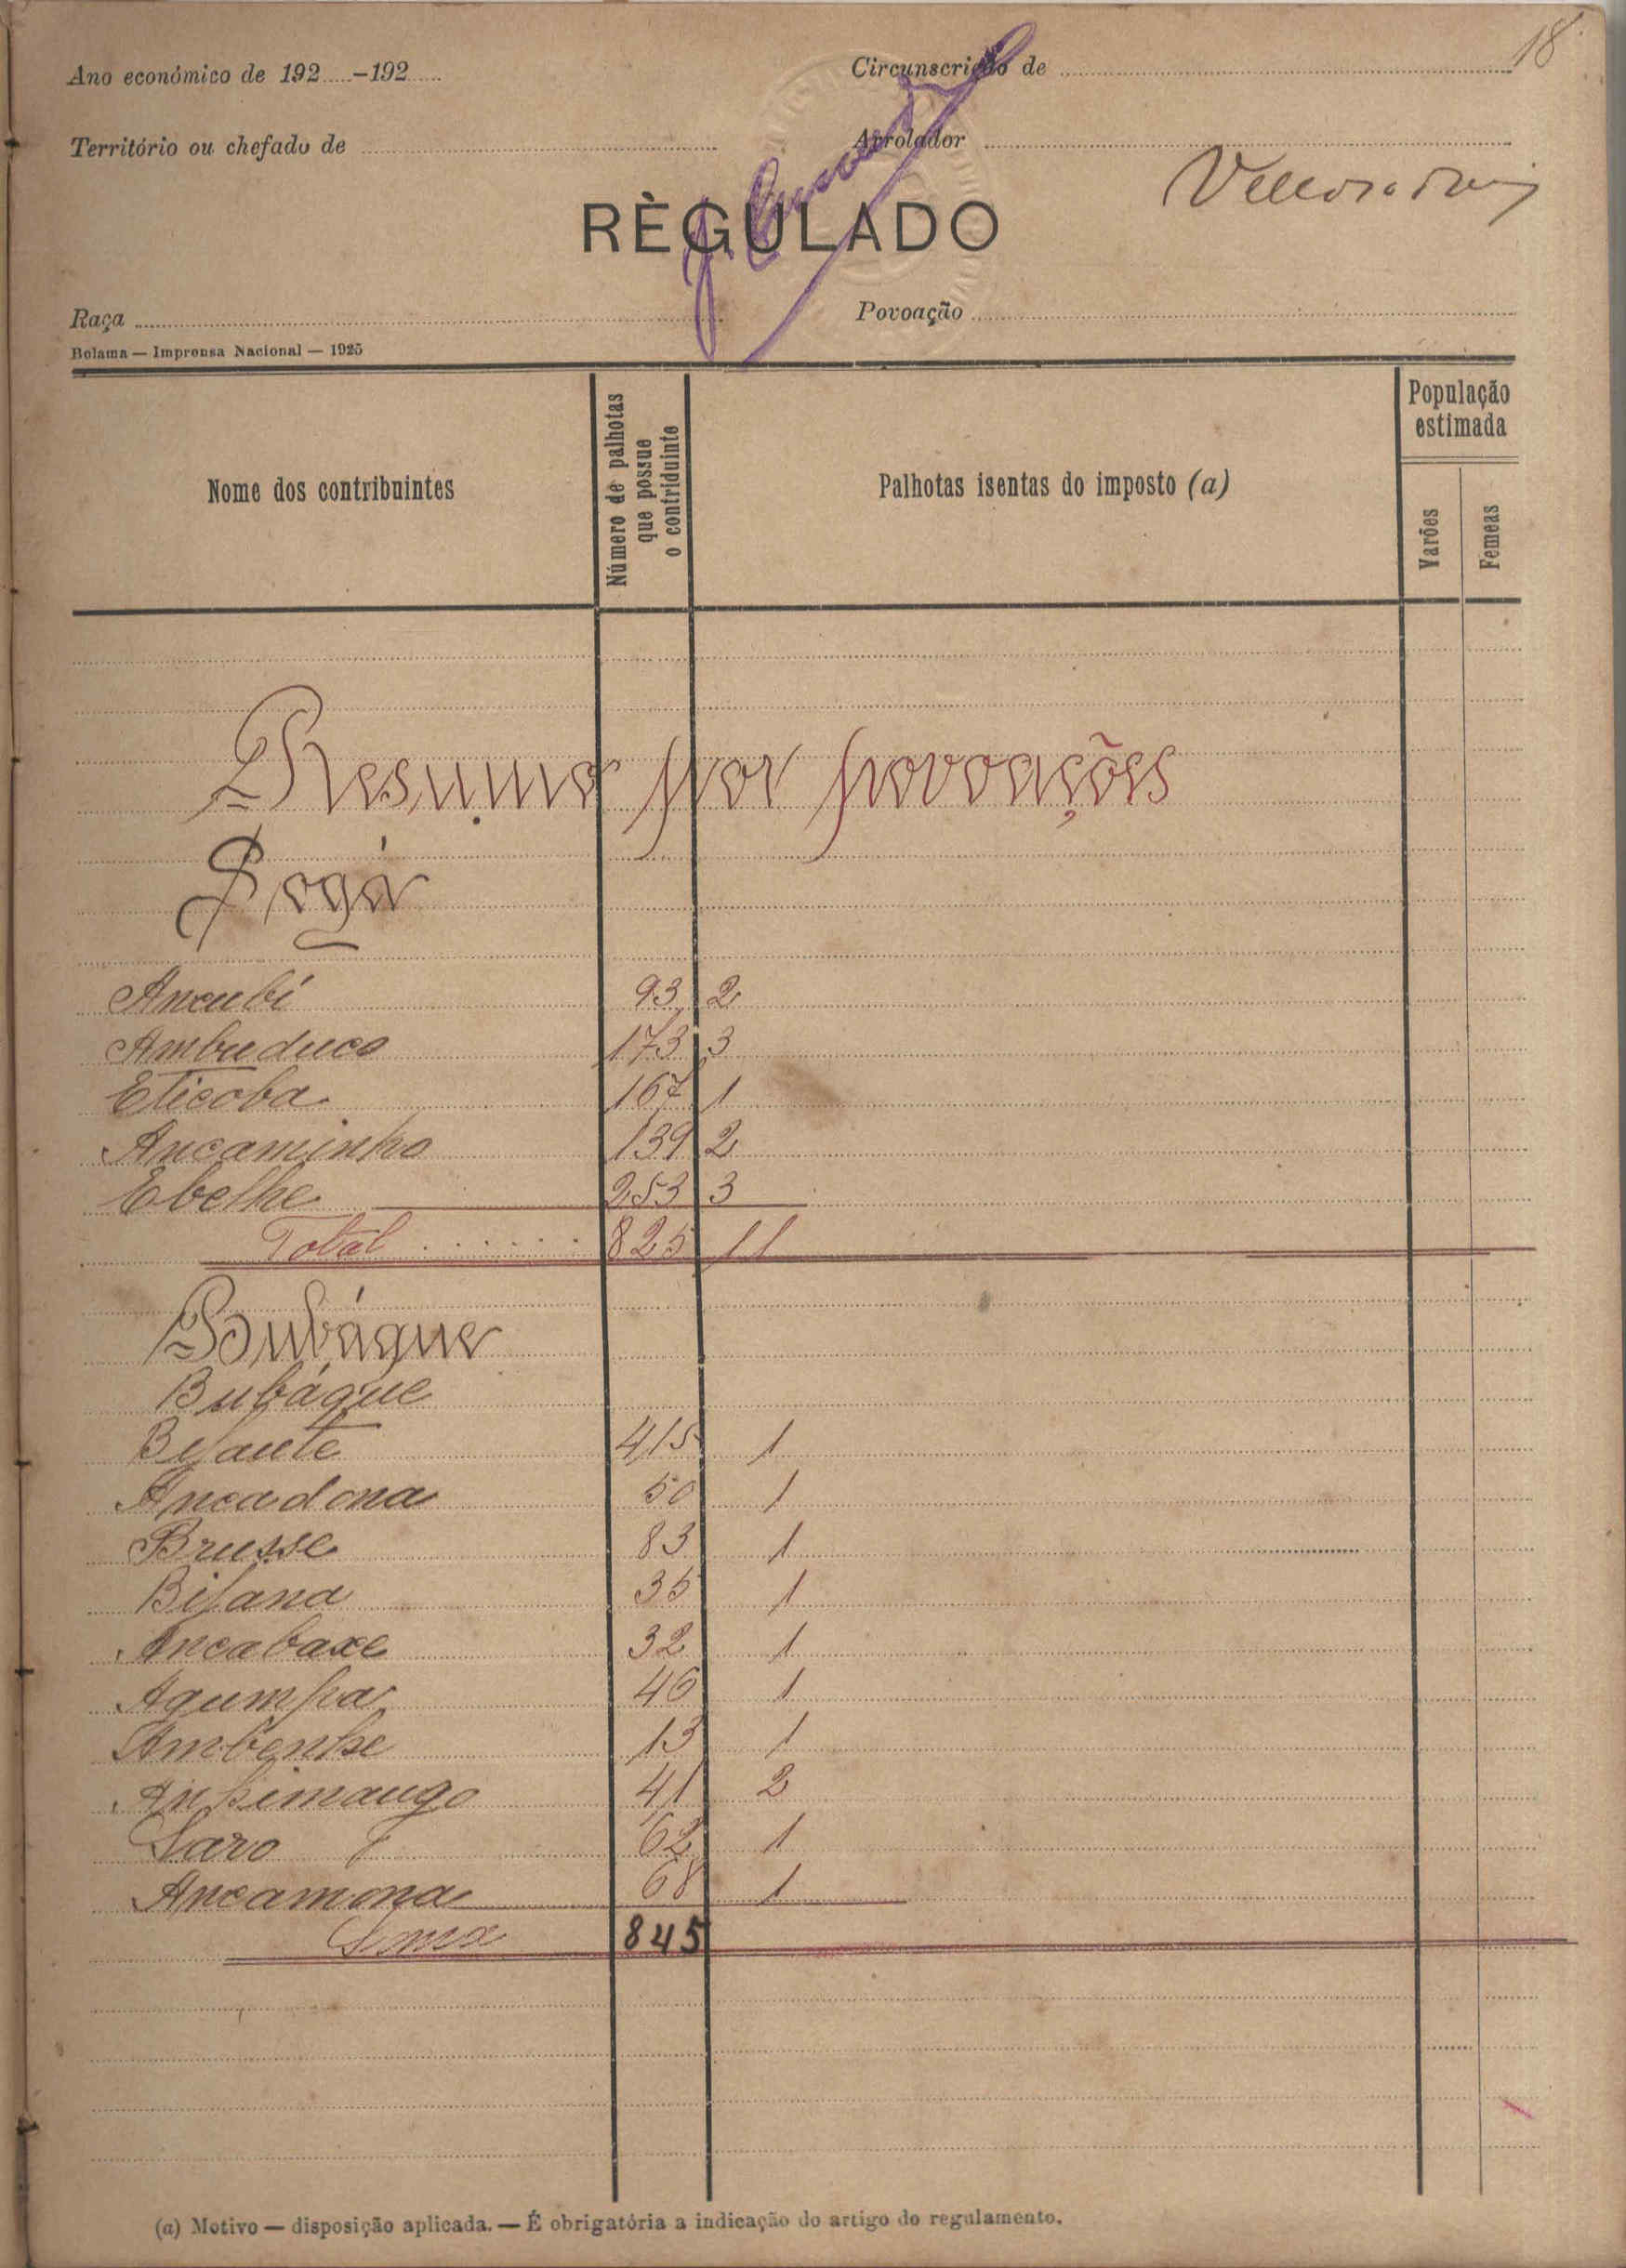 18
Ano económico de 192.....-192.....
Circunscrição de
Território ou chefado de
Arrolador
RÈGULADO
Raça
Povoação
Bolama — Imprensa Nacional — 1925
Nome dos contribuintes
Número de palhotas que possue o contriduinte
Palhotas isentas do imposto (a)
População estimada
Varões
Femeas
Resumo por povoações
Sogá
Ancubi 93 2
Ambuduco 173 3
Eticoba 167 1
Ancaminho 139 2
Ebelhe 253 3
Total 825 11
Boubáque
Bubáque
Bijante 415 1
Ancadona 50 1
Brusse 83 1
Bijana 35 1
Ancabaxe 32 1
Agumpa 46 1
Ambenhe 13 1
41 2
62 1
Ancamona 68 1
Soma 845
(a) Motivo — disposição aplicada. — É obrigatória a indicação do artigo do regulamento.